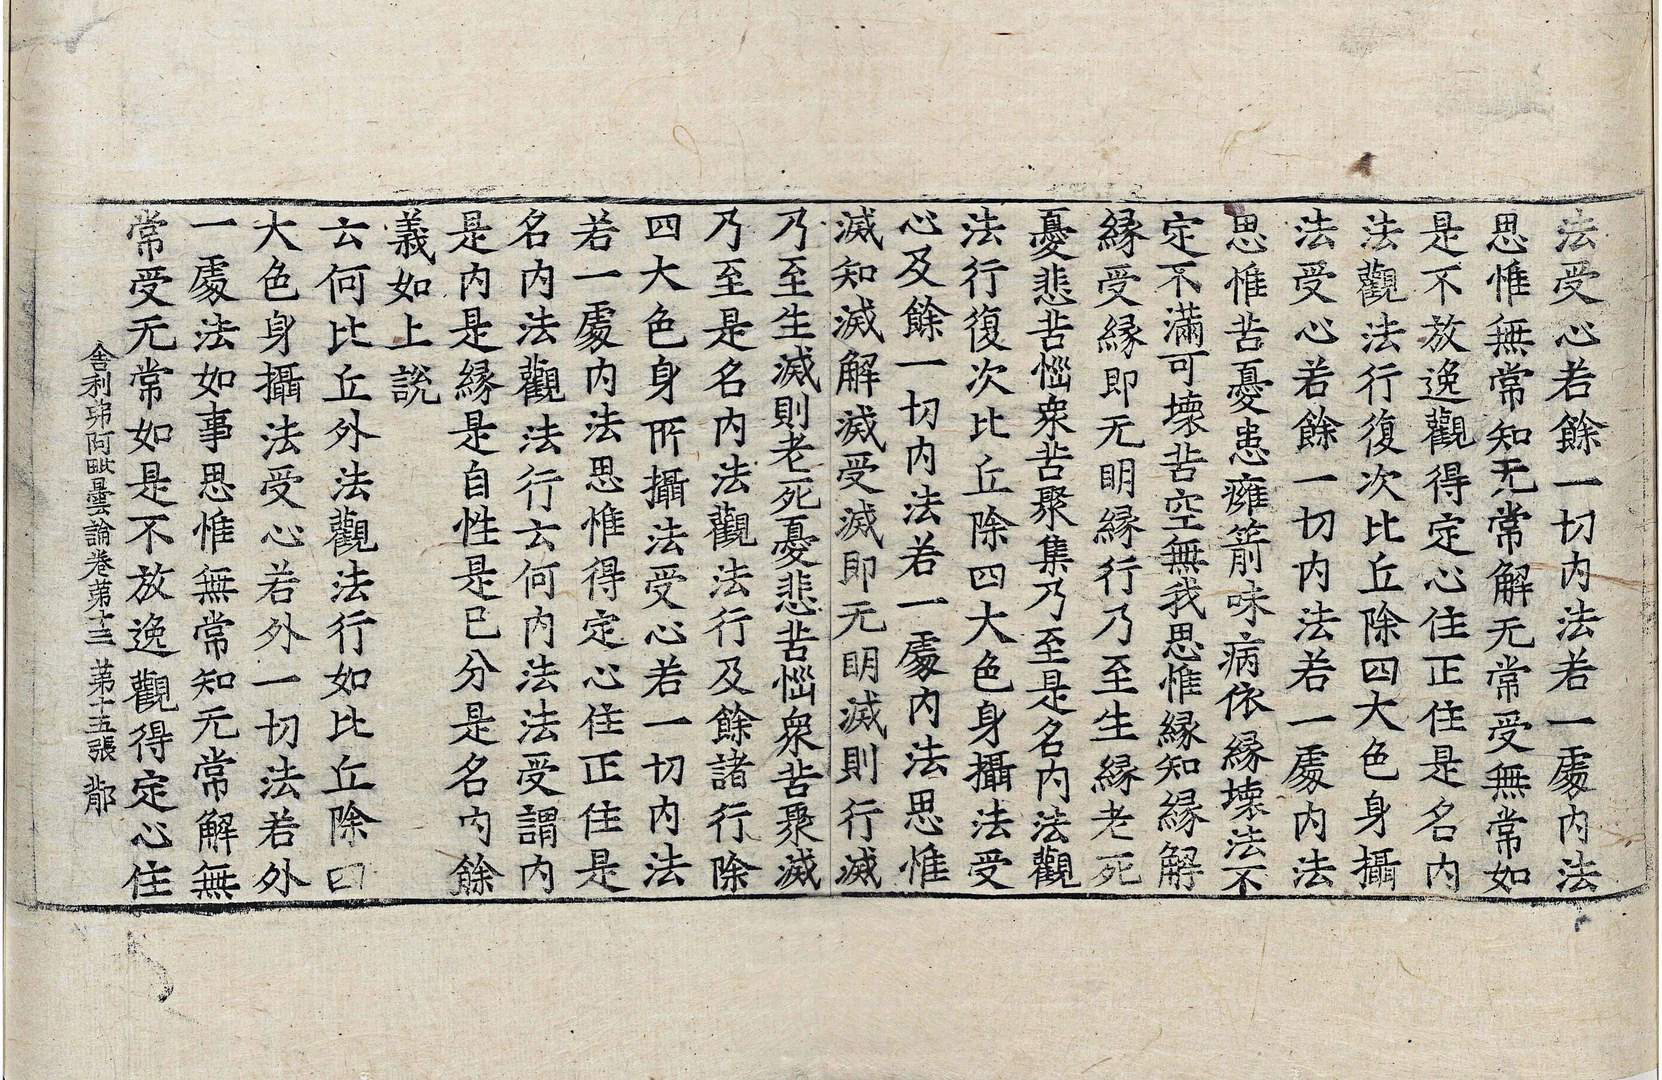 法受心若餘一切内法若一處内法
思惟無常知无常解无常受無常如
是不放逸觀得定心住正住是名内
法觀法行復次比丘除四大色身攝
法受心若餘一切内法若一處内法
思惟苦憂患癰箭味病依緣壞法不
定不滿可壞苦空無我思惟緣知緣解
緣受緣即无明緣行乃至生緣老死
憂悲苦惱衆苦聚集乃至是名内法觀
法行復次比丘除四大色身攝法受
心及餘一切内法若一處内法思惟
滅知滅解滅受滅即无明滅則行滅
乃至生滅則老死憂悲苦惱衆苦聚滅
乃至是名内法觀法行及餘諸行除
四大色身所攝法受心若一切内法
若一處内法思惟得定心住正住是
名内法觀法行云何内法法受謂内
是内是緣是自性是已分是名内餘
義如上說
云何比丘外法觀法行如比丘除四
大色身攝法受心若外一切法若外
一處法如事思惟無常知无常解無
常受无常如是不放逸觀得定心住
舍利弗阿毗曇論卷第十三 第十五張